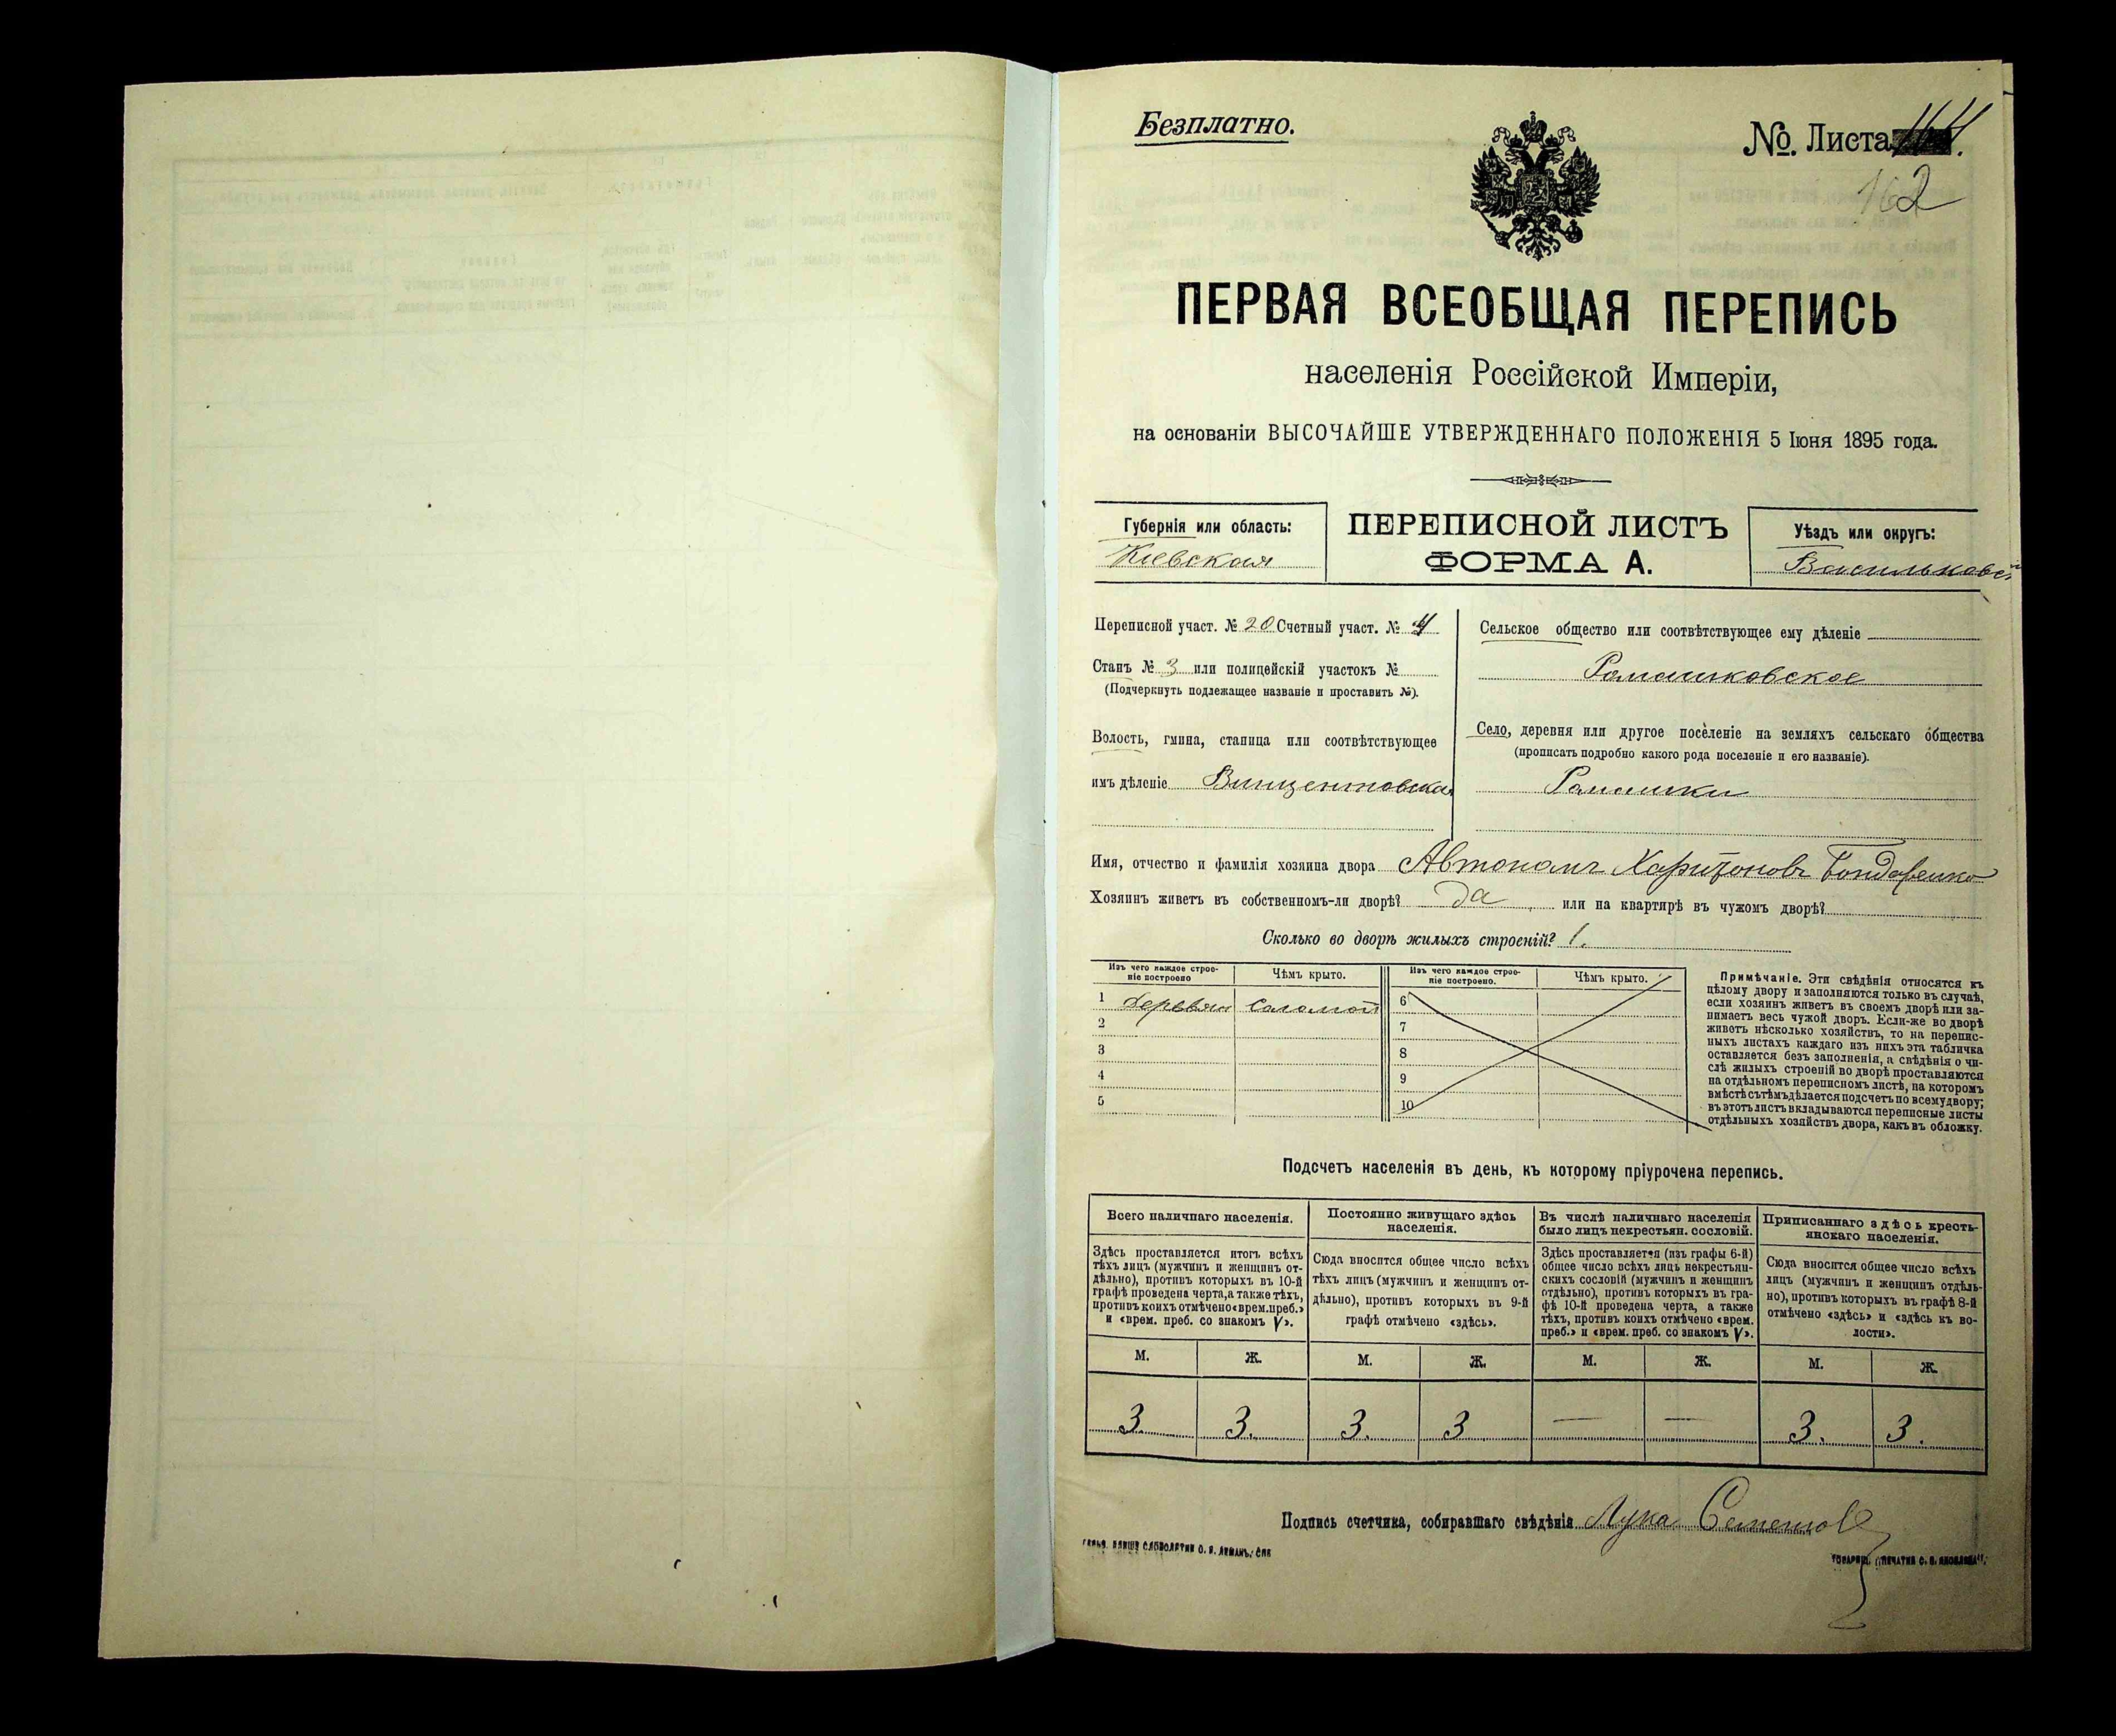 Безплатно.
№. Листа
162
ПЕРВАЯ ВСЕОБЩАЯ ПЕРЕПИСЬ
населенія Россійской Имперіи,
на основаніи ВЫСОЧАЙШЕ УТВЕРЖДЕННАГО ПОЛОЖЕНІЯ 5 Іюня 1895 года.
Губернія или область:
Кіевская
ПЕРЕПИСНОЙ ЛИСТЪ
ФОРМА А.
Уѣздъ или округъ:
Васильковскій
Переписной участ. № 20 Счетный участ. № 4
Станъ № 3 или полицейскій участокъ №
(Подчеркнуть подлежащее названіе и проставить №).
Волость, гмина, станица или соотвѣтствующее
имъ дѣленіе Винцентовская
Сельское общество или соотвѣтствующее ему дѣленіе
Ромашковское
Село, деревня или другое поселеніе на земляхъ сельскаго общества
(прописать подробно какого рода поселеніе и его названіе).
Ромашки
Имя, отчество и фамилія хозяина двора Автономъ Харитоновъ Бондаренко
Хозяинъ живетъ въ собственномъ-ли дворѣ? да или на квартирѣ въ чужомъ дворѣ?
Сколько во дворѣ жилыхъ строеній? 1.
Изъ чего каждое строеніе построено
Чѣмъ крыто.
Изъ чего каждое строеніе построено.
Чѣмъ крыто.
1 Деревян Соломой
2
3
4
5
6
7
8
9
10
Примѣчаніе. Эти свѣдѣнія относятся къ
цѣлому двору и заполняются только въ случаѣ,
если хозяинъ живетъ въ своемъ дворѣ или за-
нимаетъ весь чужой дворъ. Если-же во дворѣ
живетъ нѣсколько хозяйствъ, то на перепис-
ныхъ листахъ каждаго изъ нихъ эта табличка
оставляется безъ заполненія, а свѣдѣнія о чи-
слѣ жилыхъ строеній во дворѣ проставляются
на отдѣльномъ переписномъ листѣ, на которомъ
вмѣстѣ съ тѣмъ дѣлается подсчетъ по всему двору;
въ этотъ листъ вкладываются переписные листы
отдѣльныхъ хозяйствъ двора, какъ въ обложку.
Подсчетъ населенія въ день, къ которому пріурочена перепись.
Всего наличнаго населенія.
Здѣсь проставляется итогъ всѣхъ
тѣхъ лицъ (мужчинъ и женщинъ от-
дѣльно), противъ которыхъ въ 10-й
графѣ проведена черта, а также тѣхъ,
противъ коихъ отмѣчено «врем. преб.»
и «врем. преб. со знакомъ V».
Постоянно живущаго здѣсь
населенія.
Сюда вносится общее число всѣхъ
тѣхъ лицъ (мужчинъ и женщинъ от-
дѣльно), противъ которыхъ въ 9-й
графѣ отмѣчено «здѣсь».
Въ числѣ наличнаго населенія
было лицъ некрестьян. сословій.
Здѣсь проставляется (изъ графы 6-й)
общее число всѣхъ лицъ некрестьян-
скихъ сословій (мужчинъ и женщинъ
отдѣльно), противъ которыхъ въ гра-
фѣ 10-й проведена черта, а также
тѣхъ, противъ коихъ отмѣчено «врем.
преб.» и «врем. преб. со знакомъ V».
Приписаннаго здѣсь кресть-
янскаго населенія.
Сюда вносится общее число всѣхъ
лицъ (мужчинъ и женщинъ отдѣль-
но), противъ которыхъ въ графѣ 8-й
отмѣчено «здѣсь» и «здѣсь къ во-
лости».
М. Ж. М. Ж. М. Ж. М. Ж.
3. 3. 3. 3 — — 3. 3.
Подпись счетчика, собиравшаго свѣдѣнія Лука